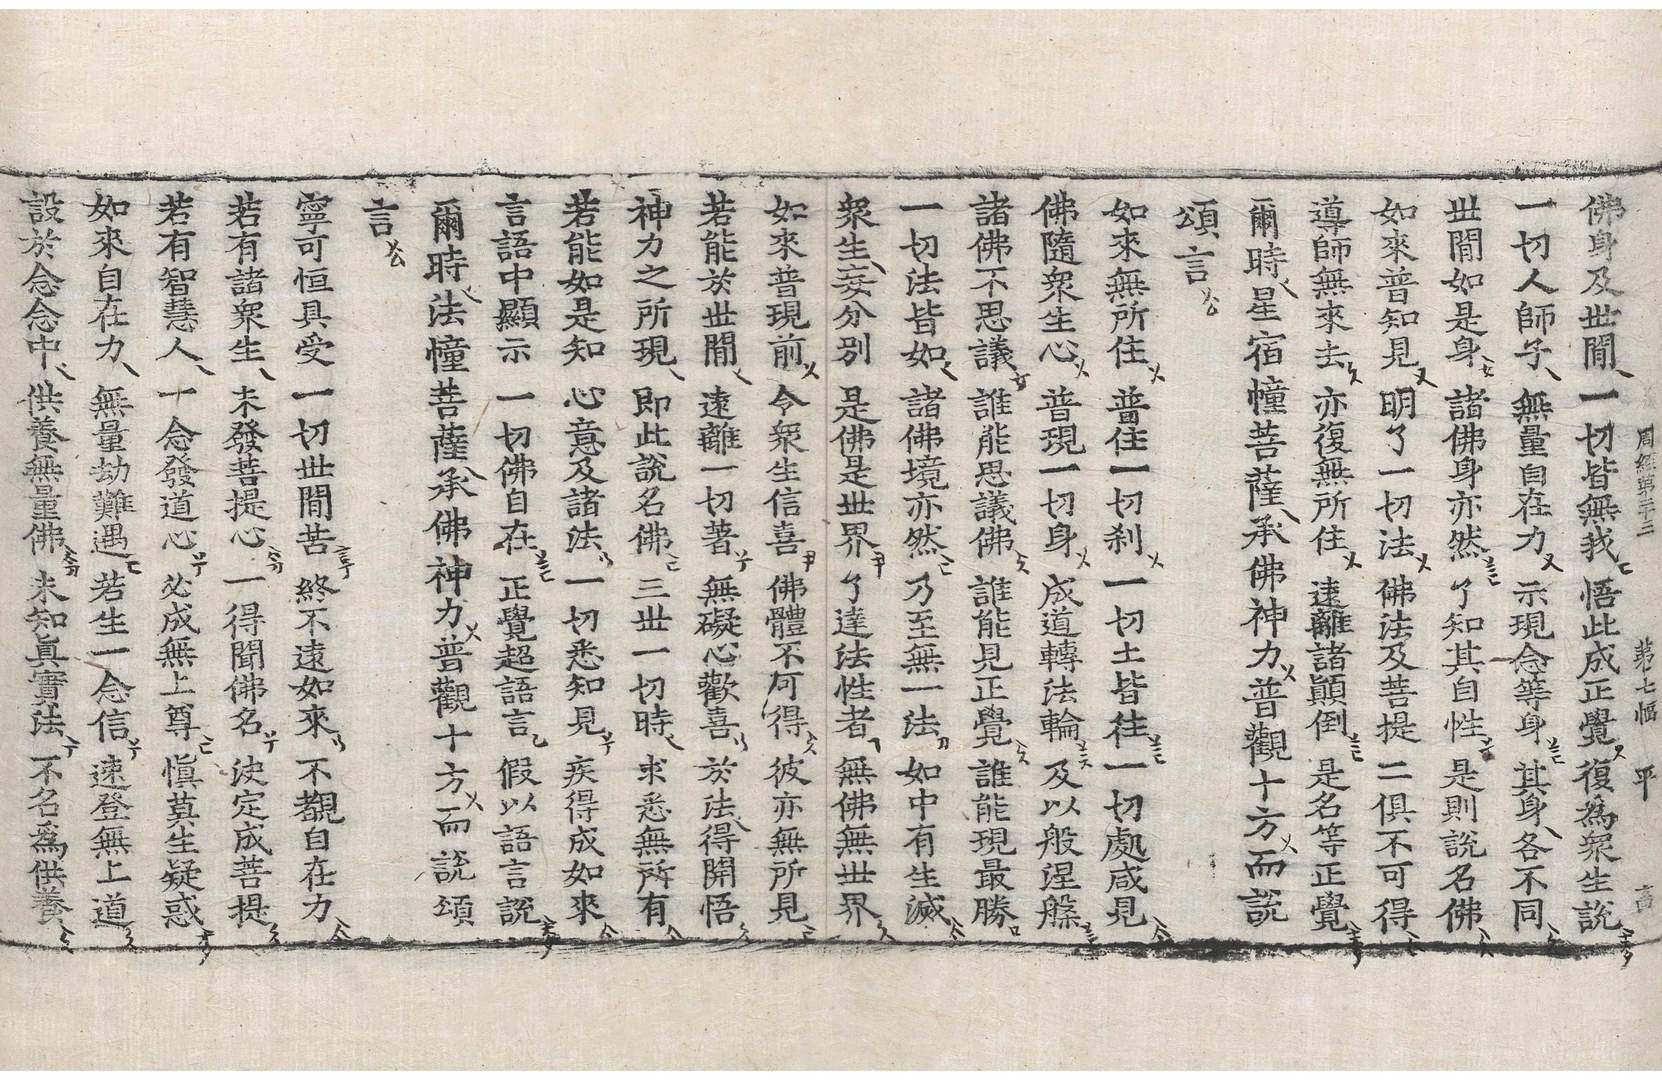 周經第二十三 第七幅 平
佛身及世間 一切皆無我 悟此成正覺 復為眾生說
一切人師子 無量自在力 示現念等身 其身各不同
世間如是身 諸佛身亦然 了知其自性 是則說名佛
如來普知見 明了一切法 佛法及菩提 二俱不可得
導師無來去 亦復無所住 遠離諸顛倒 是名等正覺
爾時星宿幢菩薩承佛神力普觀十方而說
頌言
如來無所住 普住一切剎 一切土皆往 一切處咸見
佛隨眾生心 普現一切身 成道轉法輪 及以般涅槃
諸佛不思議 誰能思議佛 誰能見正覺 誰能現最勝
一切法皆如 諸佛境亦然 乃至無一法 如中有生滅
眾生妄分別 是佛是世界 了達法性者 無佛無世界
如來普現前 令眾生信喜 佛體不可得 彼亦無所見
若能於世間 遠離一切著 無礙心歡喜 於法得開悟
神力之所現 即此說名佛 三世一切時 求悉無所有
若能如是知 心意及諸法 一切悉知見 疾得成如來
言語中顯示 一切佛自在 正覺超語言 假以語言說
爾時法幢菩薩承佛神力普觀十方而說頌
言
寧可恒具受 一切世間苦 終不遠如來 不覩自在力
若有諸眾生 未發菩提心 一得聞佛名 決定成菩提
若有智慧人 一念發道心 必成無上尊 慎莫生疑惑
如來自在力 無量劫難遇 若生一念信 速登無上道
設於念念中 供養無量佛 未知真實法 不名為供養